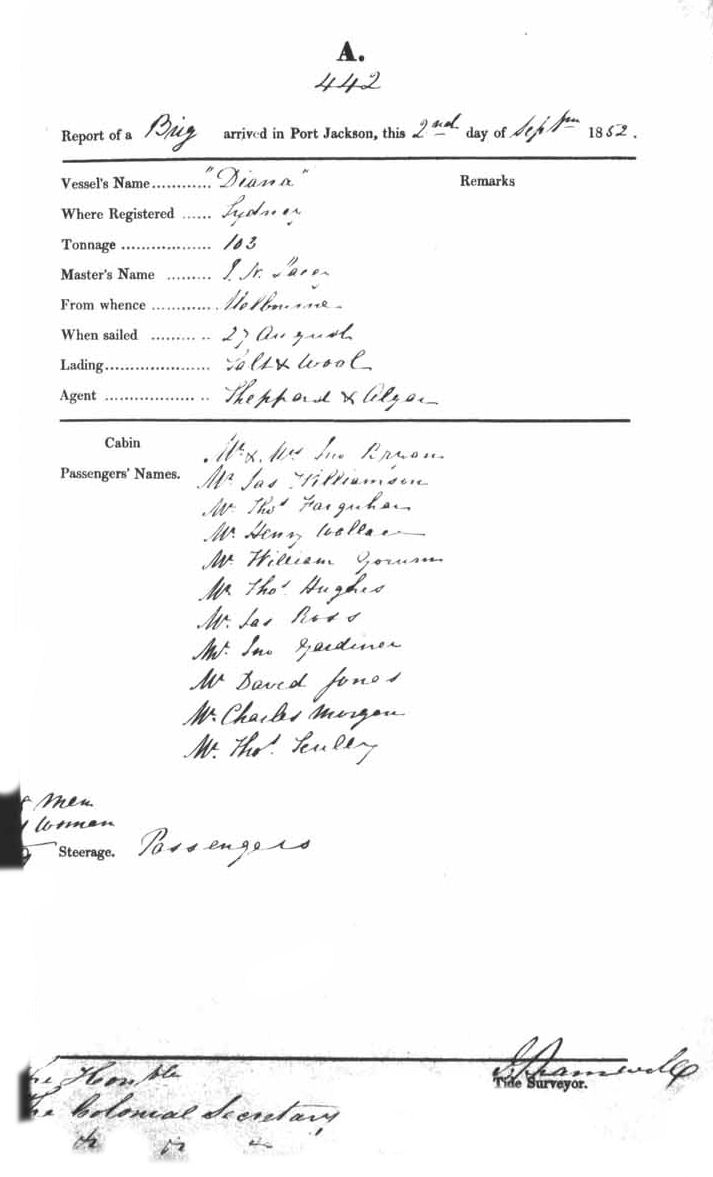 A.
442
Report of a Brig arrived in Port Jackson, this 2nd day of Septem 1852.
Vessel's Name............ "Diana" Remarks
Where Registered ...... Sydney
Tonnage .................. 103
Master's Name ......... J. N.
From whence ............. Melbourne
When sailed ......... .. 27 August
Lading..................... Salt & Wool
Agent .................. .. Sheppard & Alger
Cabin
Passengers' Names.
Mr. & Mrs Jno
Mr Jas Williamson
Mr Thos Farquhar
Mr. Henry Wallace
Mr William
Mr Thos Hughes
Mr. Jas Ross
Mr. Jno Gardiner
Mr David Jones
Mr. Charles Morgan
Mr. Thos.
Men
Woman
Steerage. Passengers
The Honble
The Colonial Secretary
Tide Surveyor.